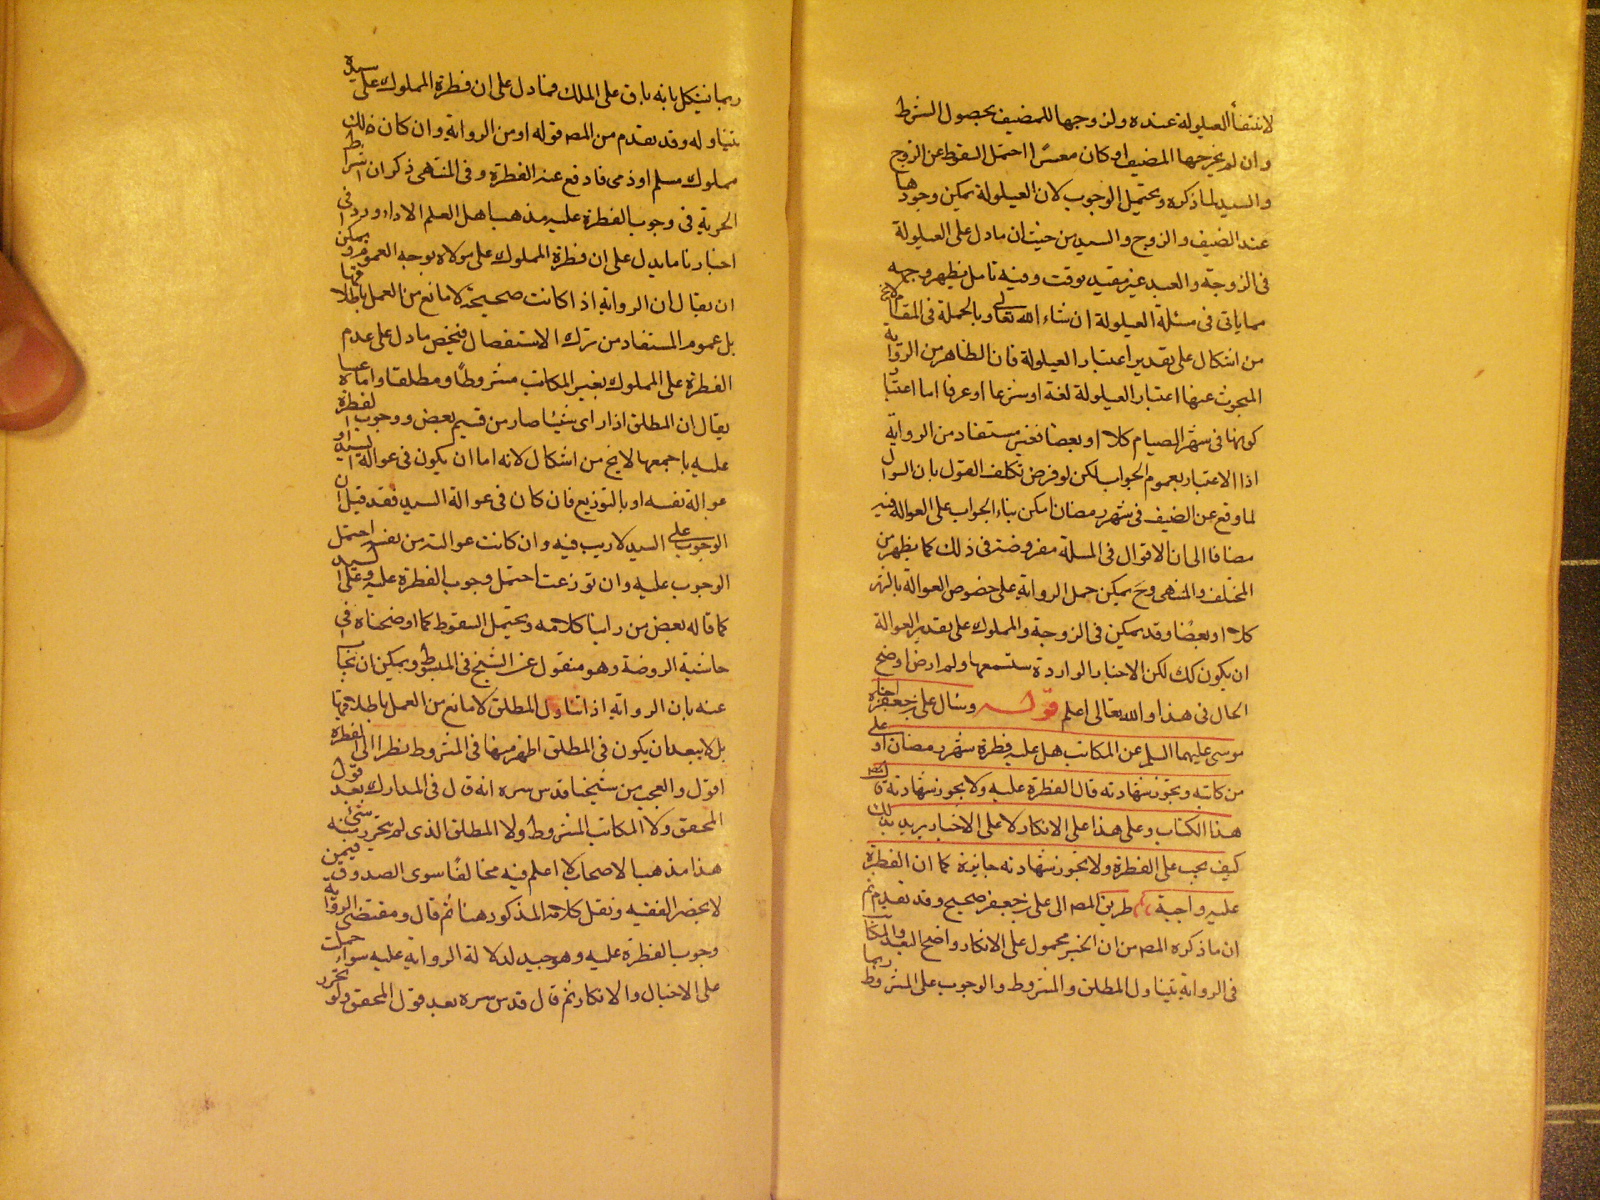 لانتفأ العيلولة عنده ولزوجها للمضيف بحصول الشرط
وان لم يخرجها المضيف او كان معسرًا احتمل السقوط عن الزوج
والسيد لما ذكره ويحتمل الوجوب لان العيلولة يمكن وجودها
عند الضيف والزوج والسيد من حيث ان ما دل على العيلولة
فى الزوجة والعبد غير مقيد بوقت وفيه تامل يظهر وجهه
مما ياتى فى مسئلة العيلولة ان شاء الله تعالى وبالجملة فى المقام لا يخ
من اشكال على تقدير اعتبار العيلولة فان الظاهر من الرواية
المبحوث عنها اعتبار العيلولة لغة او شرعا او عرفا اما اعتبار
كونها فى شهر الصيام كلا او بعضا فغير مستفاد من الرواية
اذا الاعتبار بعموم الجواب لكن لو فرض تكلف القول بان السوال
لما وقع عن الضيف فى شهر رمضان امكن بناء الجواب على العوالة فيه
مضافا الى ان الاقوال فى المسلة مفروضة فى ذلك كما يظهر من
المختلف والمنتهى وح يمكن حمل الرواية على خصوص العوالة بالشهر
كلا او بعضًا وقد يمكن فى الزوجة والمملوك على تقدير العوالة
ان يكون كك لكن الاخبار الواردة ستسمعها ولم ارض اوضح
الحال فى هذا والله تعالى اعلم قوله وسال على بن جعفر اخاه
موسى عليهما السلم عن المكاتب هل عليه فطرة شهر رمضان او على
من كاتبه وتجوز شهادته قال الفطرة عليه ولا يجوز شهادته قال
هذا الكتاب وعلى هذا على الانكار لا على الاخبار يريد بذلك
كيف يجب على الفطرة ولا تجوز شهادته جايزة كما ان الفطرة
عليه واجبة طريق المص الى على بن جعفر صحيح وقد تقدم ثم
ان ما ذكره المص من ان الخبر محمول على الانكار واضح البعد والمكاتب
فى الرواية يتناول المطلق والمشروط والوجوب على المشروط ربما
ربما يشكل بانه باق على الملك فما دل على ان فطرة المملوك على سيده
يتناوله وقد تقدم من المص قوله او من الرواية وان كان ذلك
مملوك مسلم او ذمى فادفع عنه الفطرة وفى المنتهى ذكر ان اشتراط
الحرية فى وجوب الفطرة عليه مذهب اهل العلم الا داود وفى
اخبارنا ما يدل على ان فطرة المملوك على مولاه بوجه العموم ويمكن
ان يقال ان الرواية اذا كانت صحيحة لا مانع من العمل باطلاقها
بل عموم المستفاد من ترك الاستفصال فيخص ما دل على عدم
الفطرة على المملوك بغير المكاتب مشروطًا ومطلقا واما ما عساه
يقال ان المطلق اذا راى شيئا صار من قسيم بعض ووجوب الفطرة
عليه باجمعها لا يخ من اشكال لانه اما ان يكون فى عوالة السيد او
عوالة نفسه او بالتوزيع فان كان فى عوالة السيد فقد قيل ان
الوجوب على السيد لا ريب فيه وان كانت عوالته من نفسه احتمل
الوجوب عليه وان توزعت احتمل وجوب الفطرة عليه وعلى السيد
كما قاله بعض من راينا كلامه ويحتمل السقوط كما اوضحناه فى
حاشية الروضة وهو منقول عن الشيخ فى المبسوط ويمكن ان يجاب
عنه بان الرواية اذا تناول المطلق لا مانع من العمل باطلاقها
بل لا يبعد ان يكون فى المطلق اظهر منها فى المشروط نظرا الى الفطرة
اقول والعجب من شيخنا قدس سره انه قال فى المدارك بعد قول
المحقق ولا المكاتب المشروط ولا المطلق الذى لم يتحرر منه شئ
هذا مذهب الاصحاب لا اعلم فيه مخالفًا سوى الصدوق فيمن
لا يحضر الفقيه ونقل كلامه المذكور هنا ثم قال ومقتضى الرواية
وجوب الفطرة عليه وهو جيد لدلالة الرواية عليه سواء حملت
على الاخبار والانكار ثم قال قدس سره بعد قول المحقق ولو تحرر